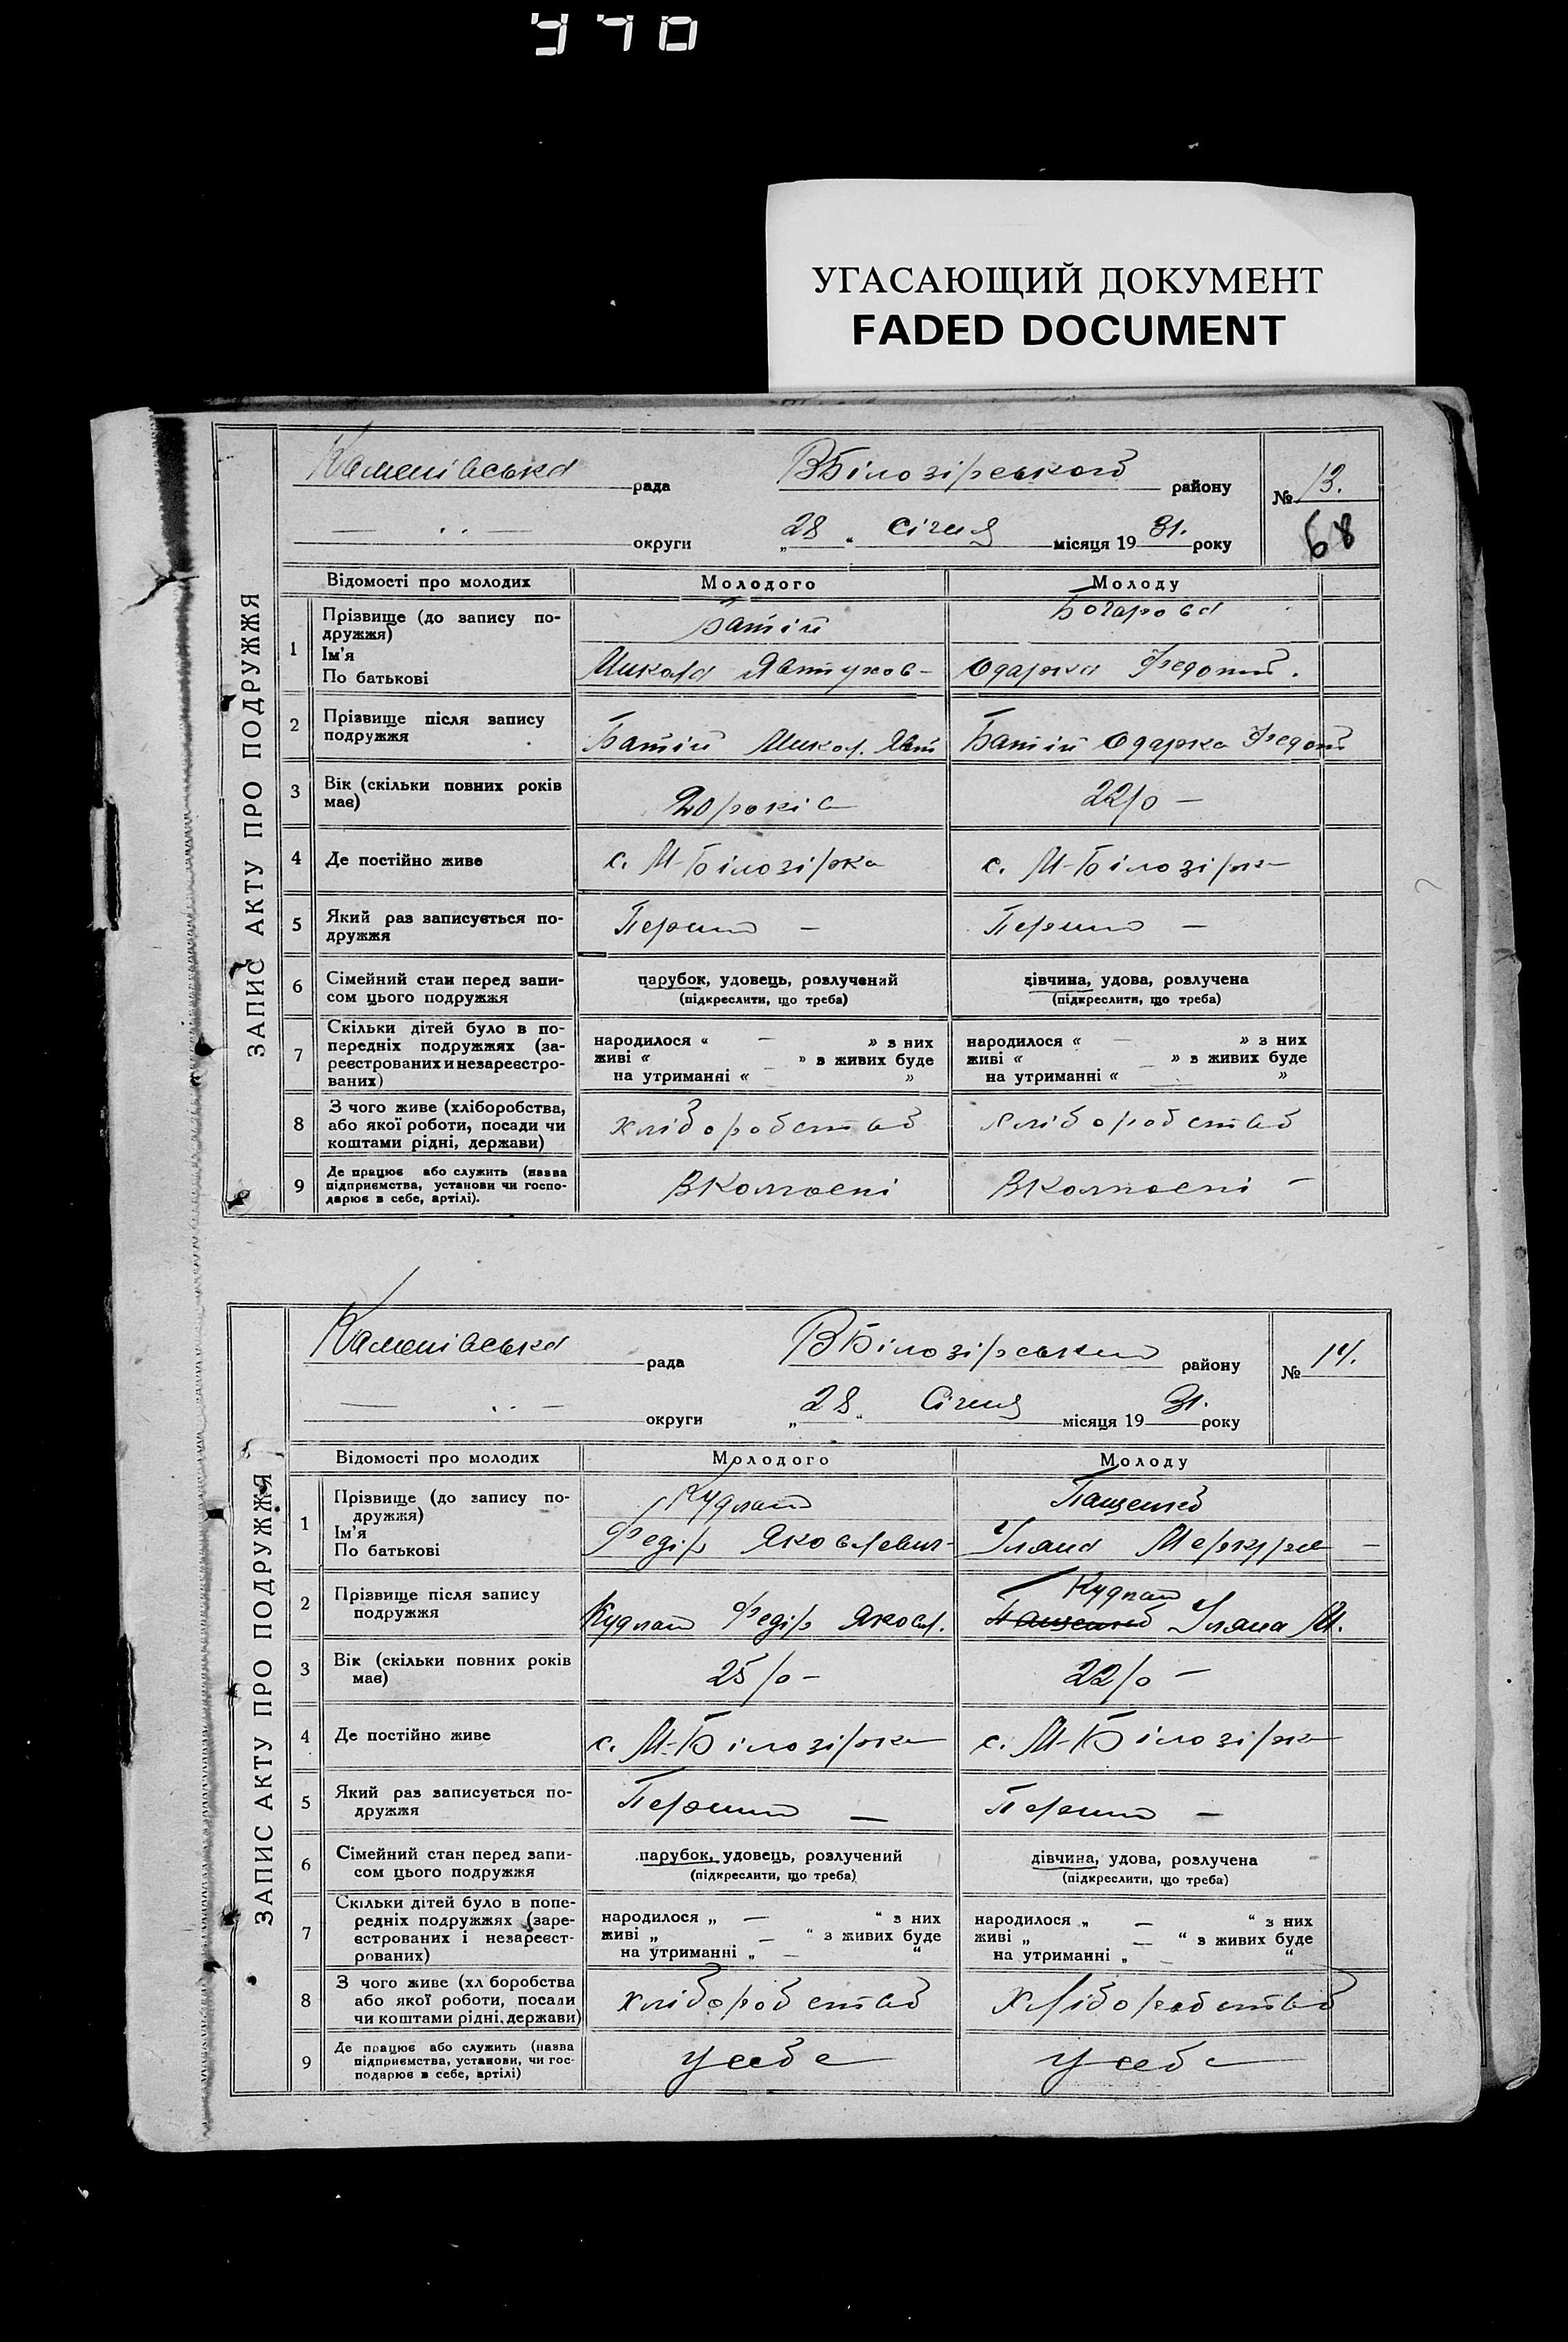 УГАСАЮЩИЙ ДОКУМЕНТ
FADED DOCUMENT
ЗАПИС АКТУ ПРО ПОДРУЖЖЯ
Каменівська рада ВБілозірського району № 13.
округи „28“ Січня місяця 1931. року
68
Відомості про молодих Молодого Молоду
1 Прізвище (до запису по-
дружжя)
Ім'я
По батькові
Батій
Микола Явтухов-
Одарка Федот.
2 Прізвище після запису
подружжя
Батій Микол. Явт
Батій Одарка Федот
3 Вік (скільки повних років
має)
20 років
22 р -
4 Де постійно живе
с. М-Білозірка
с. М-Білозірка
5 Який раз записується по-
дружжя
Перший -
Перший -
6 Сімейний стан перед запи-
сом цього подружжя
парубок, удовець, розлучений
(підкреслити, що треба)
дівчина, удова, розлучена
(підкреслити, що треба)
7 Скільки дітей було в по-
передніх подружжях (за-
реєстрованих и незареєстро-
ваних)
народилося « — » з них
живі « » з живих буде
на утриманні « — »
народилося « — » з них
живі « » з живих буде
на утриманні « — »
8 З чого живе (хліборобства,
або якої роботи, посади чи
коштами рідні, держави)
хліборобство
хліборобство
9 Де працює або служить (назва
підприємства, установи чи госпо-
дарює в себе, артілі).
ЗАПИС АКТУ ПРО ПОДРУЖЖЯ
Каменівська рада ВБілозірський району № 14.
округи „28“ Січня місяця 1931. року
Відомості про молодих Молодого Молоду
1 Прізвище (до запису по-
дружжя)
Ім'я
По батькові
Кудлай
Федір Яковлевич-
Пащенко
Уляна
2 Прізвище після запису
подружжя
Кудлай Федір Яковл.
Кудлай
Пащенко Уляна М.
3 Вік (скільки повних років
має)
25 р -
22 р -
4 Де постійно живе
с. М-Білозірка
с. М-Білозірка
5 Який раз записується по-
дружжя
Перший —
Перший -
6 Сімейний стан перед запи-
сом цього подружжя
парубок, удовець, розлучений
(підкреслити, що треба)
дівчина, удова, розлучена
(підкреслити, що треба)
7 Скільки дітей було в попе-
редніх подружжях (заре-
єстрованих і незареєст-
рованих)
народилося „ — “ з них
живі „ — “ з живих буде
на утриманні „ — “
народилося „ — “ з них
живі „ — “ з живих буде
на утриманні „ — “
8 З чого живе (хл боробства
або якої роботи, посади
чи коштами рідні, держави)
хліборобство
хліборобство
9 Де працює або служить (назва
підприємства, установи, чи гос-
подарює в себе, артілі)
у себе
у себе